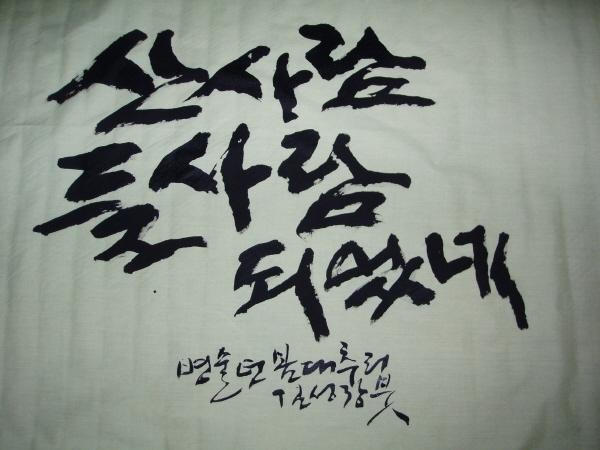 산사람
들사람
되었네
병술년 봄 대추리
김성장 붓